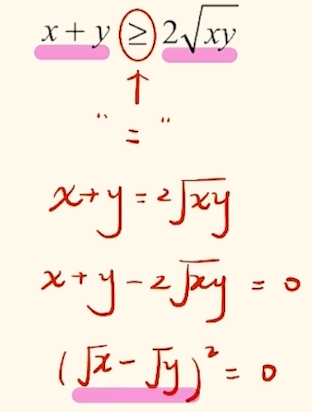 x + y ≥ 2√xy
" = "
x+y = 2√xy
x+y-2√xy = 0
(√x - √y)² = 0